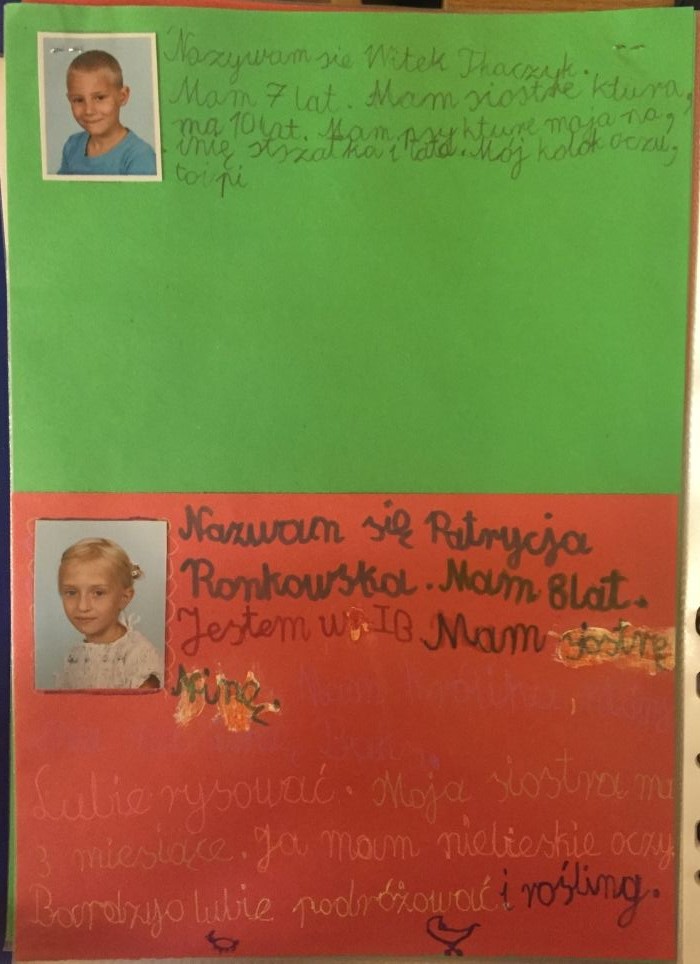 Nazywam sie Witek Tkaczyk.
Mam 7 lat. Mam siostre ktura,
ma 10 lat. Mam psy kture maja na,
imię i Mój kolor oczu,
to i pi
Nazwam się Patrycja
Ronkowska. Mam 8 lat.
Jestem w IB Mam siostrę
Ninę. Mam
Lubie rysować. Moja siostra ma
3 miesiące. Ja mam niebieskie oczy
Bardzo lubie podróżować i rośling.